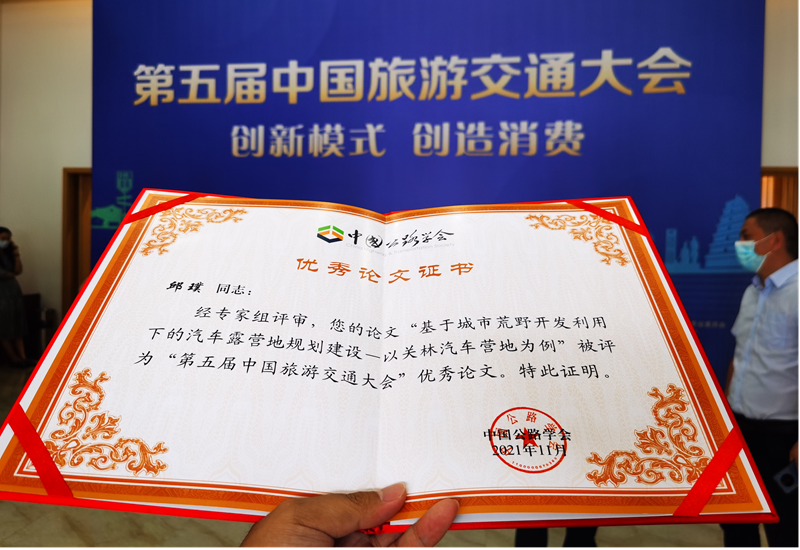 第五届中国旅游交通大会
创新模式 创造消费
中国公路学会
优秀论文证书
邱璞 同志：
经专家组评审，您的论文“基于城市荒野开发利用
下的汽车露营地规划建设—以关林汽车营地为例”被评
为“第五届中国旅游交通大会”优秀论文。特此证明。
中国公路学会
2021年11月